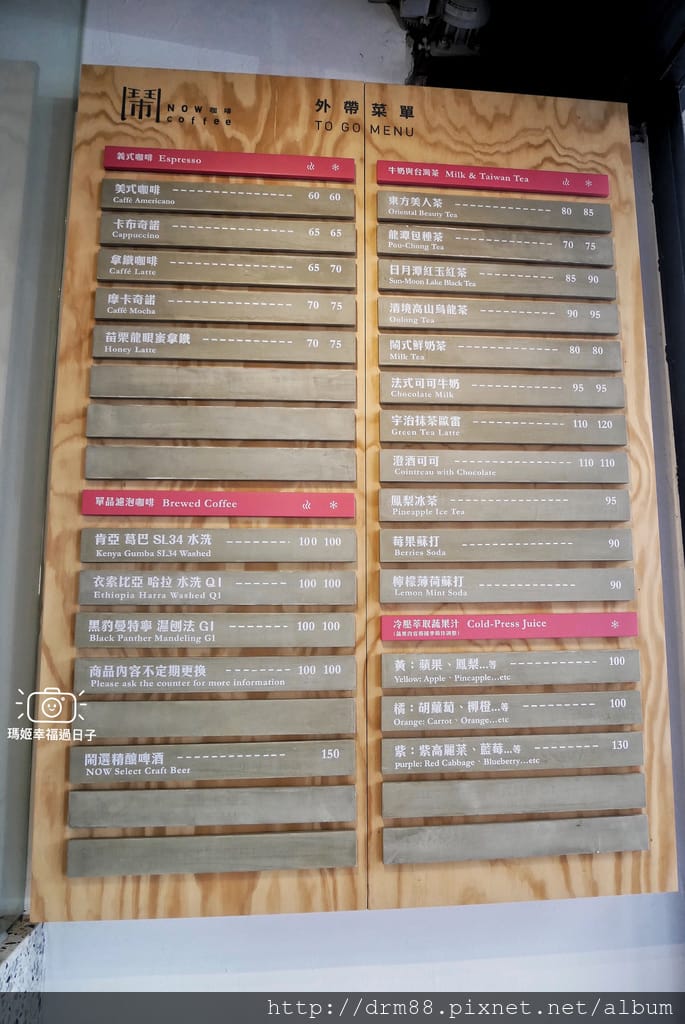 鬧 NOW 咖啡
coffee
外帶菜單
TO GO MENU
義式咖啡 Espresso
美式咖啡 60 60
Caffé Americano
卡布奇諾 65 65
Cappuccino
拿鐵咖啡 65 70
Caffé Latte
摩卡奇諾 70 75
Caffé Mocha
苗栗龍眼蜜拿鐵 70 75
Honey Latte
單品濾泡咖啡 Brewed Coffee
肯亞 葛巴 SL34 水洗 100 100
Kenya Gumba SL34 Washed
衣索比亞 哈拉 水洗 Q1 100 100
Ethiopia Harra Washed Q1
黑豹曼特寧 濕刨法 G1 100 100
Black Panther Mandeling G1
商品內容不定期更換 100 100
Please ask the counter for more information
鬧選精釀啤酒 150
NOW Select Craft Beer
牛奶與台灣茶 Milk & Taiwan Tea
東方美人茶 80 85
Oriental Beauty Tea
龍潭包種茶 70 75
Pou-Chong Tea
日月潭紅玉紅茶 85 90
Sun-Moon Lake Black Tea
清境高山烏龍茶 90 95
Oulong Tea
鬧式鮮奶茶 80 80
Milk Tea
法式可可牛奶 95 95
Chocolate Milk
宇治抹茶歐蕾 110 120
Green Tea Latte
澄酒可可 110 110
Cointreau with Chocolate
鳳梨冰茶 95
Pineapple Ice Tea
莓果蘇打 90
Berries Soda
檸檬薄荷蘇打 90
Lemon Mint Soda
冷壓萃取蔬果汁 Cold-Press Juice
黃：蘋果、鳳梨...等 100
Yellow: Apple、Pineapple...etc
橘：胡蘿蔔、柳橙...等 100
Orange: Carrot、Orange...etc
紫：紫高麗菜、藍莓...等 130
purple: Red Cabbage、Blueberry...etc
瑪姬幸福過日子
http://drm88.pixnet.net/album